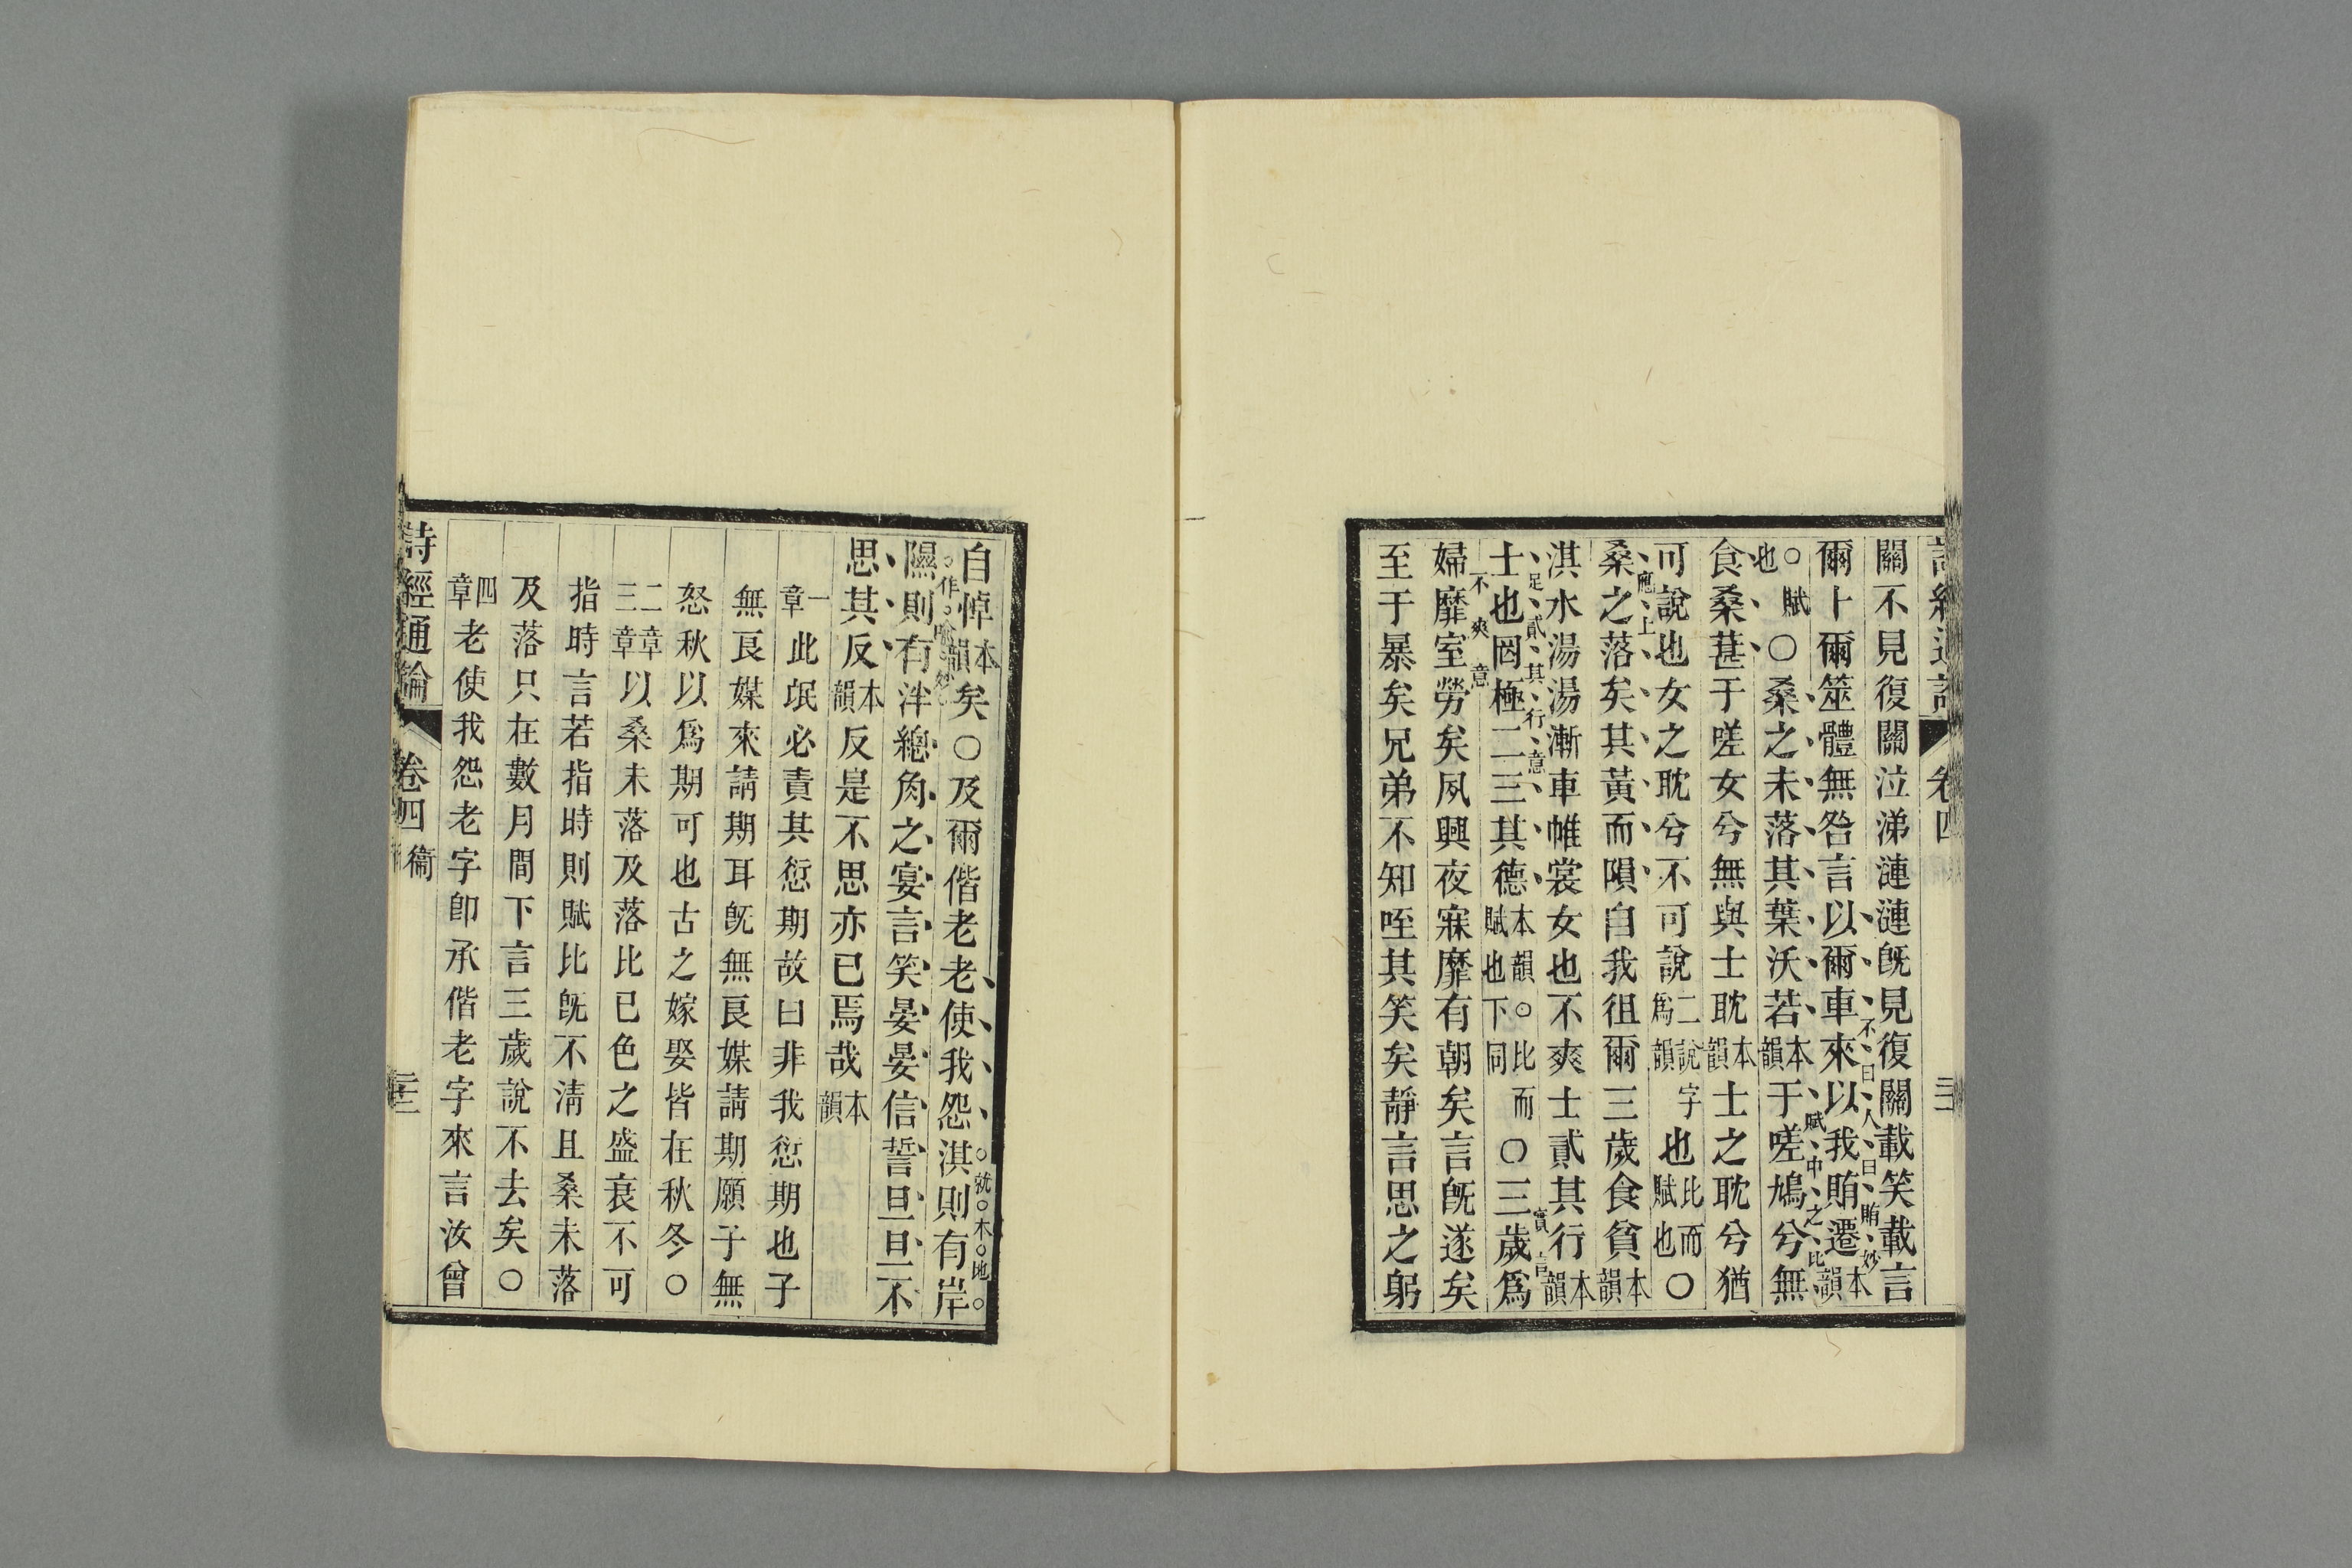 關不見復關泣涕漣漣旣見復關載笑載言
不曰人曰賄妙
爾卜爾筮體無咎言以爾車來以我賄遷本韻
賦中之比
○賦也○桑之未落其葉沃若本韻于嗟鳩兮無
食桑葚于嗟女兮無與士耽本韻士之耽兮猶
可說也女之耽兮不可說二說字爲韻也比而賦也○
應上
桑之落矣其黃而隕自我徂爾三歲食貧本韻
淇水湯湯漸車帷裳女也不爽士貳其行本韻
足貳其行意
士也罔極二三其德本韻○比而賦也下同○三歲爲
不爽意
婦靡室勞矣夙興夜寐靡有朝矣言旣遂矣
至于暴矣兄弟不知咥其笑矣靜言思之躬
自悼本韻矣○及爾偕老老使我怨淇則有岸
就木地
隰則有泮總角之宴言笑晏晏信誓旦旦不
思其反本韻反是不思亦已焉哉本韻
一章此氓必責其愆期故曰非我愆期也子
無良媒來請期耳旣無良媒請期願子無
怒秋以爲期可也古之嫁娶皆在秋冬○
二章三章以桑未落及落比己色之盛衰不可
指時言若指時則賦比旣不淸且桑未落
及落只在數月間下言三歲說不去矣○
四章老使我怨老字卽承偕老字來言汝曾
詩經通論 卷四 衞